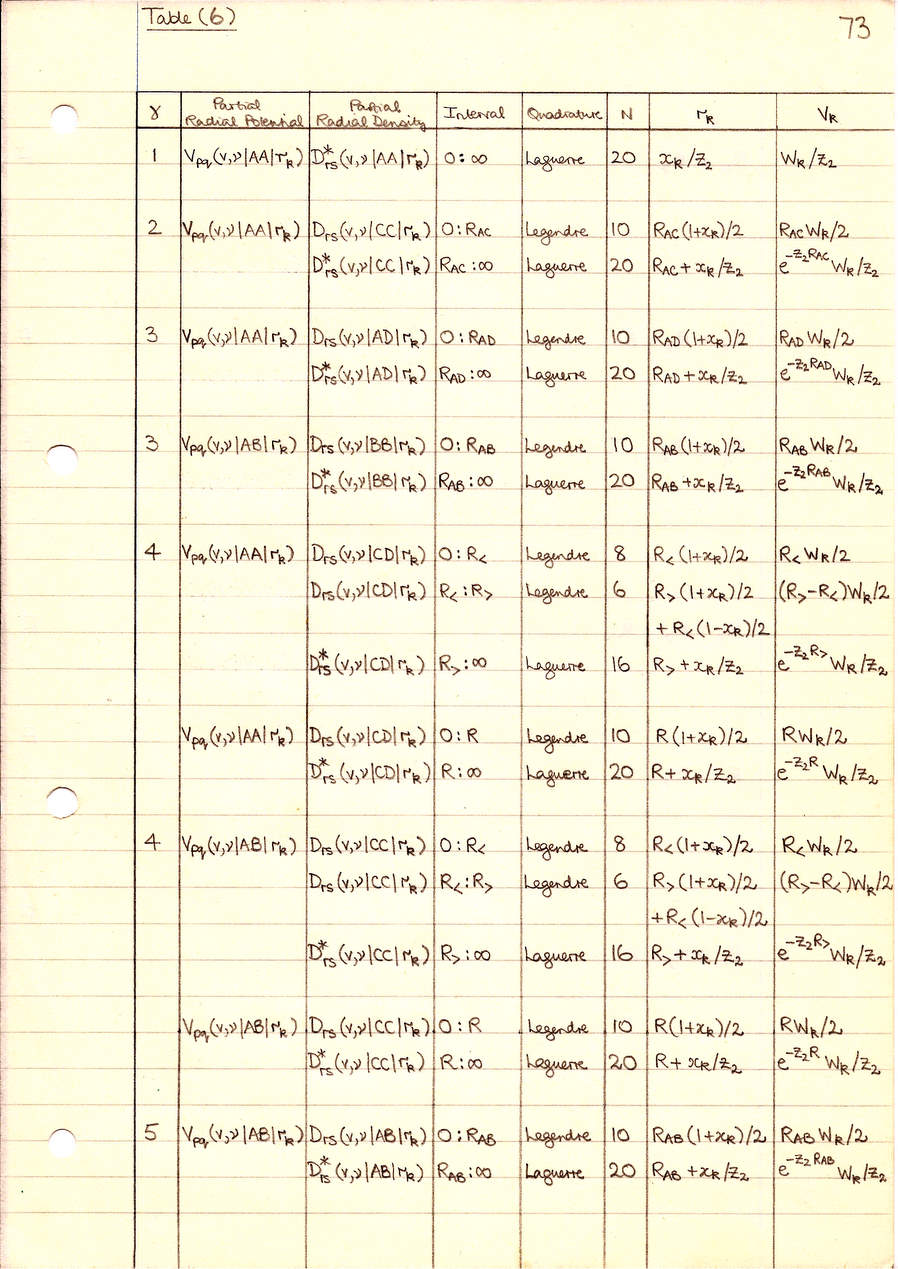 Table (6)
73
γ Partial Radial Potential Partial Radial Density Interval Quadrature N r_K V_K
1 V_pq(v,ν|AA|r_K) D*_rs(v,ν|AA|r_K) 0:∞ Laguerre 20 x_K/Z_2 W_K/Z_2
2 V_pq(v,ν|AA|r_K) D_rs(v,ν|CC|r_K) 0:R_AC Legendre 10 R_AC(1+x_K)/2 R_AC W_K/2
D*_rs(v,ν|CC|r_K) R_AC:∞ Laguerre 20 R_AC + x_K/Z_2 e^{-Z_2 R_AC} W_K/Z_2
3 V_pq(v,ν|AA|r_K) D_rs(v,ν|AD|r_K) 0:R_AD Legendre 10 R_AD(1+x_K)/2 R_AD W_K/2
D*_rs(v,ν|AD|r_K) R_AD:∞ Laguerre 20 R_AD + x_K/Z_2 e^{-Z_2 R_AD} W_K/Z_2
3 V_pq(v,ν|AB|r_K) D_rs(v,ν|BB|r_K) 0:R_AB Legendre 10 R_AB(1+x_K)/2 R_AB W_K/2
D*_rs(v,ν|BB|r_K) R_AB:∞ Laguerre 20 R_AB + x_K/Z_2 e^{-Z_2 R_AB} W_K/Z_2
4 V_pq(v,ν|AA|r_K) D_rs(v,ν|CD|r_K) 0:R_< Legendre 8 R_<(1+x_K)/2 R_< W_K/2
D_rs(v,ν|CD|r_K) R_<:R_> Legendre 6 R_>(1+x_K)/2 (R_>-R_<)W_K/2
+ R_<(1-x_K)/2
D*_rs(v,ν|CD|r_K) R_>:∞ Laguerre 16 R_> + x_K/Z_2 e^{-Z_2 R_>} W_K/Z_2
V_pq(v,ν|AA|r_K) D_rs(v,ν|CD|r_K) 0:R Legendre 10 R(1+x_K)/2 R W_K/2
D*_rs(v,ν|CD|r_K) R:∞ Laguerre 20 R + x_K/Z_2 e^{-Z_2 R} W_K/Z_2
4 V_pq(v,ν|AB|r_K) D_rs(v,ν|CC|r_K) 0:R_< Legendre 8 R_<(1+x_K)/2 R_< W_K/2
D_rs(v,ν|CC|r_K) R_<:R_> Legendre 6 R_>(1+x_K)/2 (R_>-R_<)W_K/2
+ R_<(1-x_K)/2
D*_rs(v,ν|CC|r_K) R_>:∞ Laguerre 16 R_> + x_K/Z_2 e^{-Z_2 R_>} W_K/Z_2
V_pq(v,ν|AB|r_K) D_rs(v,ν|CC|r_K) 0:R Legendre 10 R(1+x_K)/2 R W_K/2
D*_rs(v,ν|CC|r_K) R:∞ Laguerre 20 R + x_K/Z_2 e^{-Z_2 R} W_K/Z_2
5 V_pq(v,ν|AB|r_K) D_rs(v,ν|AB|r_K) 0:R_AB Legendre 10 R_AB(1+x_K)/2 R_AB W_K/2
D*_rs(v,ν|AB|r_K) R_AB:∞ Laguerre 20 R_AB + x_K/Z_2 e^{-Z_2 R_AB} W_K/Z_2